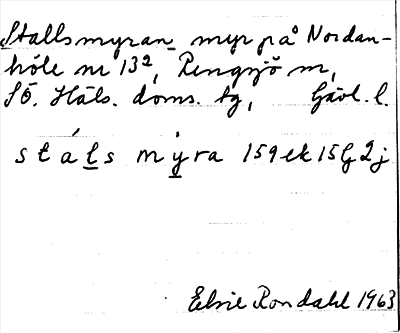 Stallsmyran myr på Nordan-
höle nr 13², Rengsjö sn,
SÖ. Häls. doms. tg, Gävl. l.
stáls mỳra 159 ek 15G 2j
Elsie Rondahl 1963